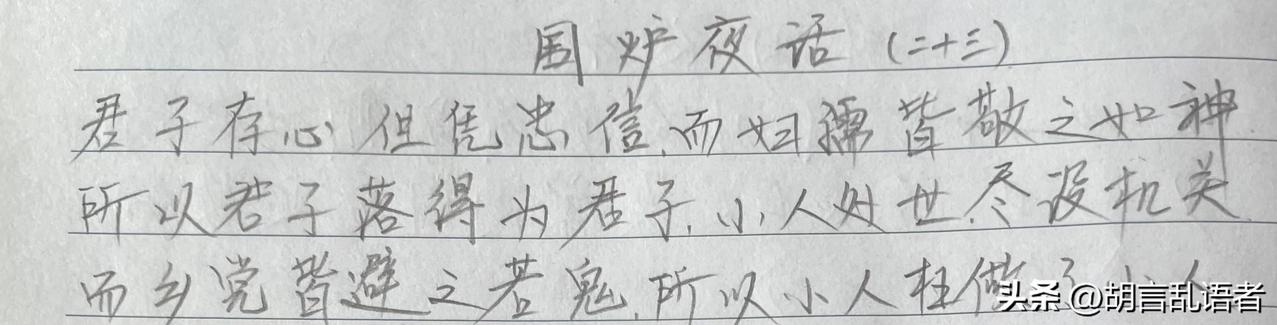 围炉夜话(二十三)
君子存心但凭忠信,而妇孺皆敬之如神
所以君子落得为君子,小人处世尽设机关,
而乡党皆避之若鬼,所以小人枉做了小人
头条 @胡言乱语者